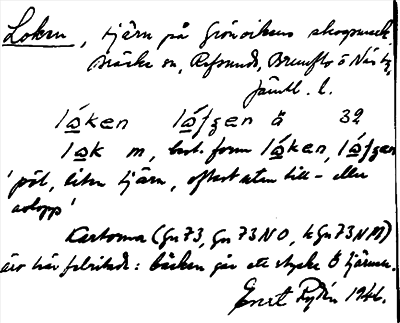 Loken, tjärn på Grönvikens skogsmark
Bräcke sn, Refsunds, Brunflo o Näs tg,
Jämtl. l.
låken låʃʒen ö 32
låk m, best. form låken, låʃʒen
'pöl, liten tjärn, oftast utan till- eller
avlopp'
Kartorna (Gn 73, Gn 73 NO, k Gn 73 NM)
äro här felritade: bäcken går ett stycke Ö tjärnen.
Ernst Rydén 1944.